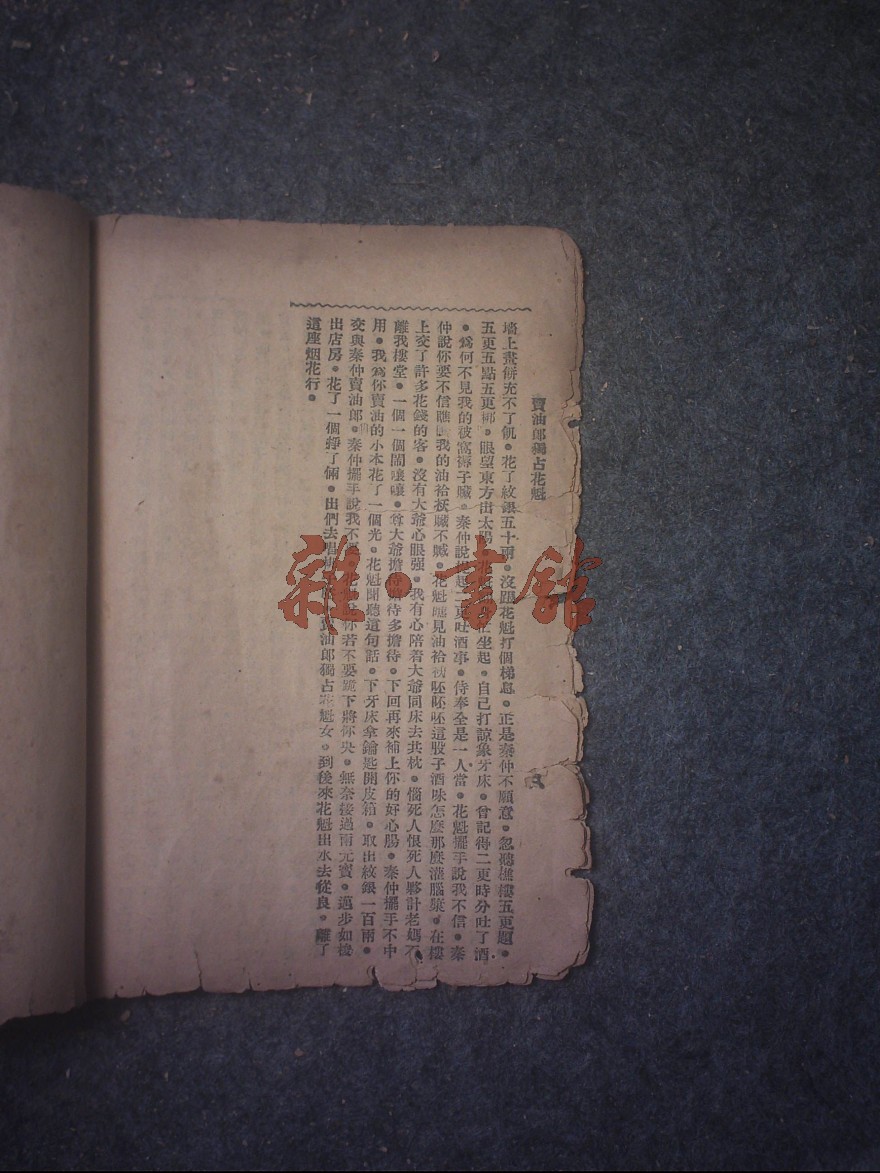 賣油郎獨占花魁
墙上畫併充不了飢。花了紋銀五十兩。沒跟花魁打個梯息。正是秦仲不願意。忽聽樵樓五更題。
五更五點五更梆。眼望東方出太陽。花魁坐起。自己打諒象牙床。曾記得二更時分吐了酒
。爲何不見我的被窩褥子贓。秦仲說起二更吐酒事。侍奉全是一人當。花魁擺手說我不信。秦
仲說你要不信瞧瞧我的油袷袄贓不贓。花魁瞧見油袷初呸呸呸這股子酒味怎麽那麽灌腦漿。在樓
上交了許多花錢的客。沒有大爺心眼强。我有心陪着大爺同床去共枕。惱死人恨死人夥計老媽不
離我樓堂。一個一個鬧嚷嚷。尊大爺擔待擔待多擔待。下回再來補上你的好心腸。秦仲擺手不中
用。我爲你賣油的小本花了一個光。花魁聞聽這句話。下牙床拿鑰匙開皮箱。取出紋銀一百兩。
交與秦仲賣油郎。秦仲擺手說我不要。你若不要跪下將你央。無奈接過兩元寳。邁步如梭
出店房。花了一個掙了倆。出們去唱 賣油郎獨占花魁女。到後來花魁出水去從良。離了
這座烟花行。
雜·書館